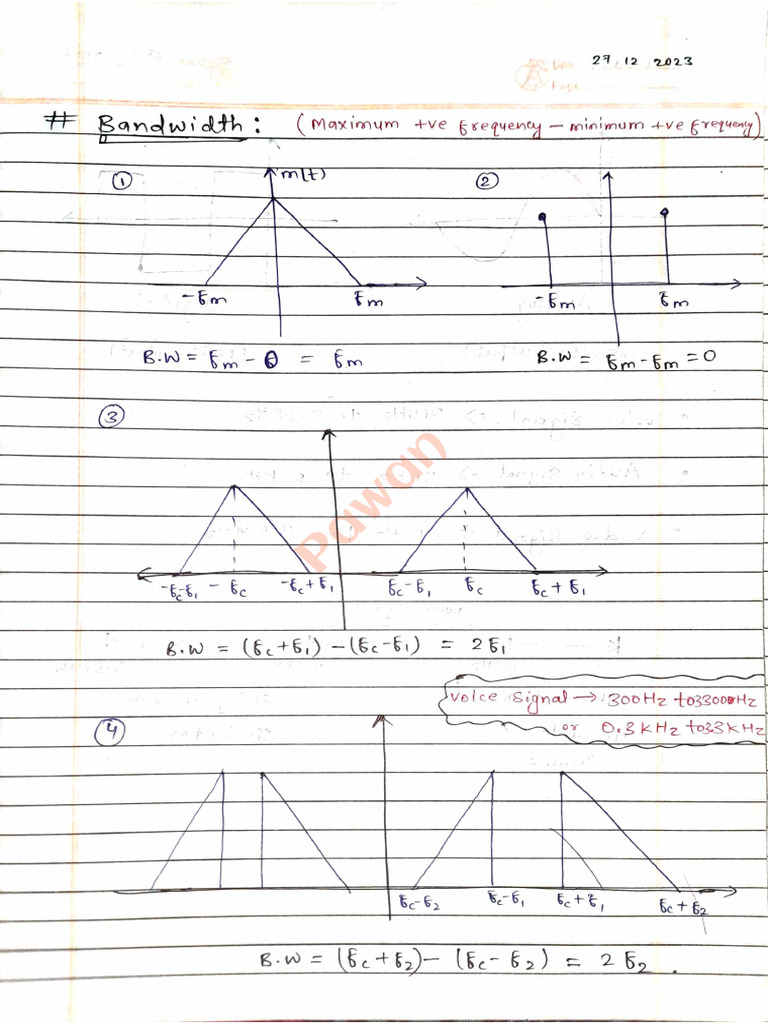 27.12.2023
# Bandwidth: (Maximum +ve frequency - minimum +ve frequency)
① m(t) ②
-fm fm -fm fm
B.W = fm - 0 = fm B.W = fm - fm = 0
③
Pawan
-fc-f1 -fc -fc+f1 fc-f1 fc fc+f1
B.W = (fc+f1) - (fc-f1) = 2f1
Voice Signal → 300Hz to 3300Hz
or 0.3kHz to 3.3kHz
④
fc-f2 fc-f1 fc+f1 fc+f2
B.W = (fc+f2) - (fc-f2) = 2f2.